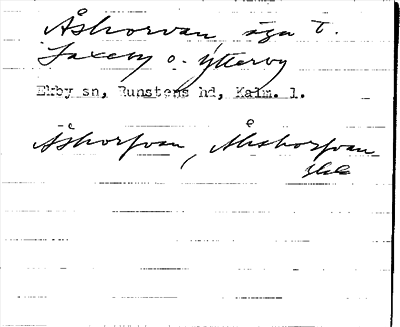 Åskorvan, äga t.
Laxeby o. Ytterby
Ekby sn, Runstens hd, Kalm. l.
Åskorfvan, Åhskorfvan